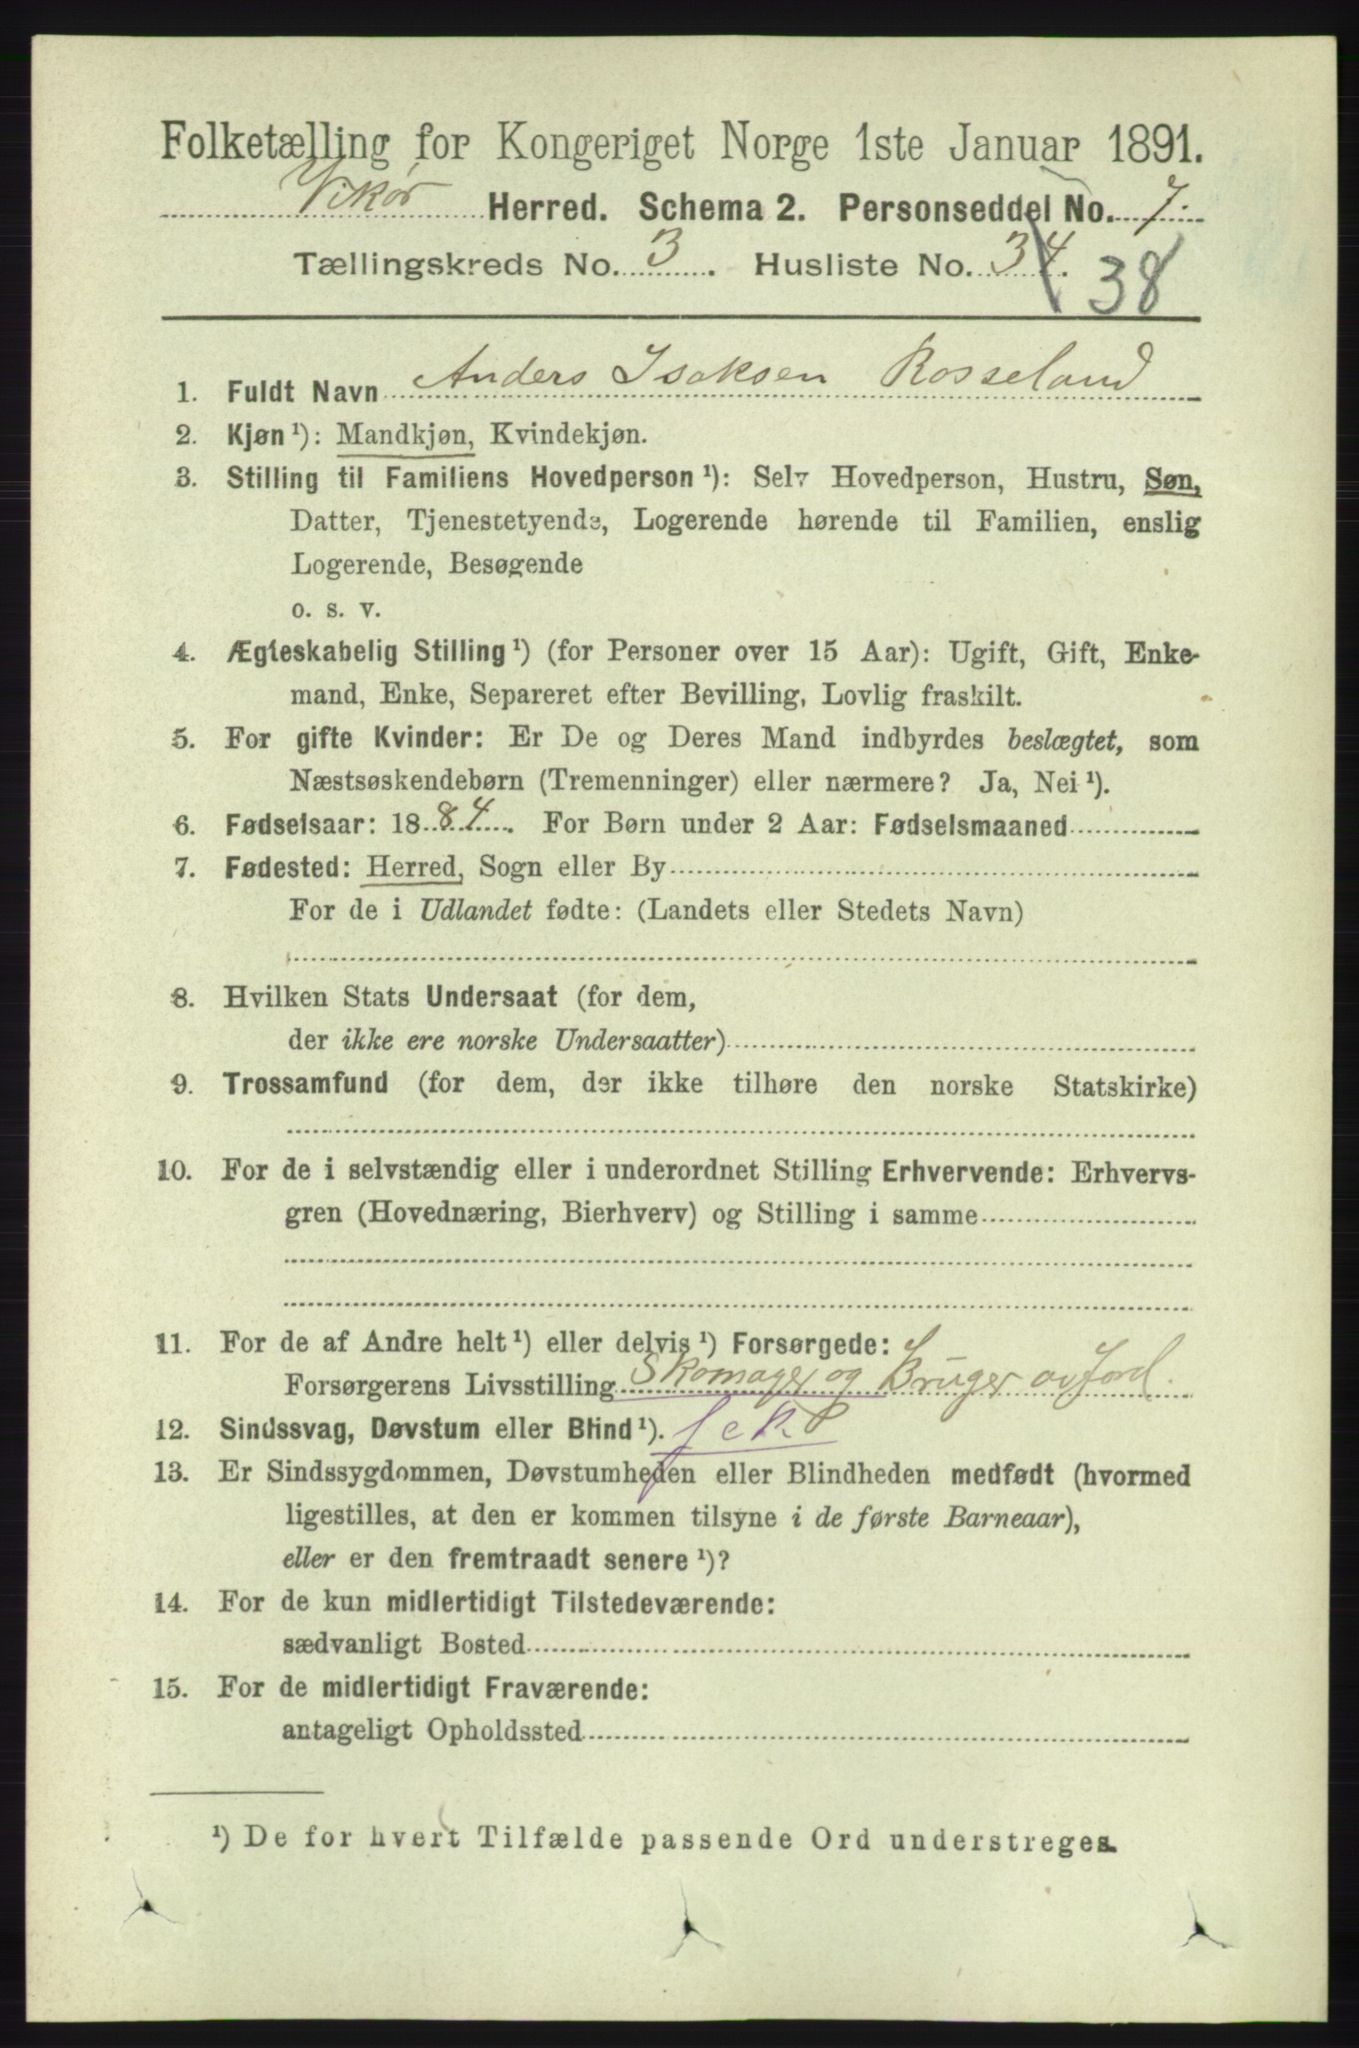 Folketælling for Kongeriget Norge 1ste Januar 1891.
Vikør Herred. Schema 2. Personseddel No. 7.
Tællingskreds No. 3. Husliste No. 34. 38
1. Fuldt Navn Anders Isaksen Rosseland
2. Kjøn ¹): Mandkjøn, Kvindekjøn.
3. Stilling til Familiens Hovedperson ¹): Selv Hovedperson, Hustru, Søn,
Datter, Tjenestetyende, Logerende hørende til Familien, enslig
Logerende, Besøgende
o. s. v.
4. Ægteskabelig Stilling ¹) (for Personer over 15 Aar): Ugift, Gift, Enke-
mand, Enke, Separeret efter Bevilling, Lovlig fraskilt.
5. For gifte Kvinder: Er De og Deres Mand indbyrdes beslægtet, som
Næstsøskendebørn (Tremenninger) eller nærmere? Ja, Nei ¹).
6. Fødselsaar: 1884. For Børn under 2 Aar: Fødselsmaaned
7. Fødested: Herred, Sogn eller By
For de i Udlandet fødte: (Landets eller Stedets Navn)
8. Hvilken Stats Undersaat (for dem,
der ikke ere norske Undersaatter)
9. Trossamfund (for dem, der ikke tilhøre den norske Statskirke)
10. For de i selvstændig eller i underordnet Stilling Erhvervende: Erhvervs-
gren (Hovednæring, Bierhverv) og Stilling i samme
11. For de af Andre helt ¹) eller delvis ¹) Forsørgede:
Forsørgerens Livsstilling Skomager og Bruger av Jord.
12. Sindssvag, Døvstum eller Blind ¹).
13. Er Sindssygdommen, Døvstumheden eller Blindheden medfødt (hvormed
ligestilles, at den er kommen tilsyne i de første Barneaar),
eller er den fremtraadt senere ¹)?
14. For de kun midlertidigt Tilstedeværende:
sædvanligt Bosted
15. For de midlertidigt Fraværende:
antageligt Opholdssted
¹) De for hvert Tilfælde passende Ord understreges.